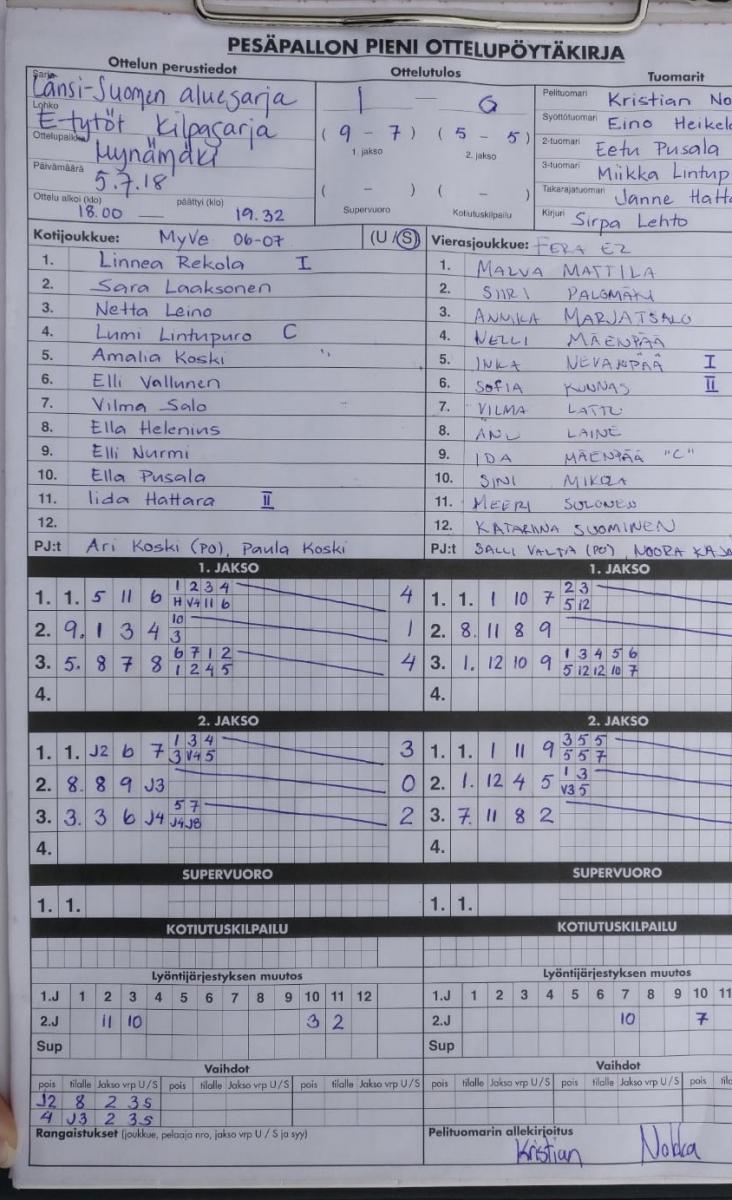 PESÄPALLON PIENI OTTELUPÖYTÄKIRJA
Ottelun perustiedot Ottelutulos Tuomarit
Sarja Länsi-Suomen aluesarja
Lohko E-tytöt Kilpasarja
Ottelupaikka Mynämäki
Päivämäärä 5.7.18
Ottelu alkoi (klo) 18.00 päättyi (klo) 19.32
1 – 0
( 9 – 7 ) ( 5 – 5 )
1. jakso 2. jakso
( – ) ( – )
Supervuoro Kotiutuskilpailu
Pelituomari Kristian No
Syöttötuomari Eino Heikel
2-tuomari Eetu Pusala
3-tuomari Miikka Lintup
Takarajatuomari Janne Hatt
Kirjuri Sirpa Lehto
Kotijoukkue: MyVe 06-07 (U / S)
1. Linnea Rekola I
2. Sara Laaksonen
3. Netta Leino
4. Lumi Lintupuro C
5. Amalia Koski
6. Elli Vallunen
7. Vilma Salo
8. Ella Helenius
9. Elli Nurmi
10. Ella Pusala
11. Iida Hattara II
12.
PJ:t Ari Koski (PO), Paula Koski
Vierasjoukkue: FERA E2
1. MALVA MATTILA
2. SIIRI PALOMÄKI
3. ANNIKA MARJATSALO
4. NELLI MÄENPÄÄ
5. INKA NEVANPÄÄ I
6. SOFIA KUNNAS II
7. VILMA LATTU
8. ANU LAINE
9. IDA MÄENPÄÄ "C"
10. SINI MIKOLA
11. MEERI SOLONEN
12. KATARIINA SUOMINEN
PJ:t SALLI (PO), NOORA
1. JAKSO 1. JAKSO
1. 1. 5 11 6 1 2 3 4 4
H V4 11 6
2. 9. 1 3 4 10 1
3
3. 5. 8 7 8 6 7 1 2 4
1 2 4 5
4.
1. 1. 1 10 7 2 3
5 12
2. 8. 11 8 9
3. 1. 12 10 9 1 3 4 5 6
5 12 12 10 7
4.
2. JAKSO 2. JAKSO
1. 1. J2 6 7 1 3 4 3
3 V4 5
2. 8. 8 9 J3 0
3. 3. 3 6 J4 5 7 2
J4 J8
4.
1. 1. 1 11 9 3 5 5
5 5 7
2. 1. 12 4 5 1 3
V3 5
3. 7. 11 8 2
4.
SUPERVUORO SUPERVUORO
1. 1. 1. 1.
KOTIUTUSKILPAILU KOTIUTUSKILPAILU
Lyöntijärjestyksen muutos Lyöntijärjestyksen muutos
1.J 1 2 3 4 5 6 7 8 9 10 11 12 1.J 1 2 3 4 5 6 7 8 9 10 11
2.J 11 10 3 2 2.J 10 7
Sup Sup
Vaihdot Vaihdot
pois tilalle Jakso vrp U/S pois tilalle Jakso vrp U/S pois tilalle Jakso vrp U/S pois tilalle Jakso vrp U/S pois tilalle Jakso vrp U/S pois
J2 8 2 3s
4 J3 2 3s
Rangaistukset (joukkue, pelaaja nro, jakso vrp U / S ja syy) Pelituomarin allekirjoitus
Kristian Nokka